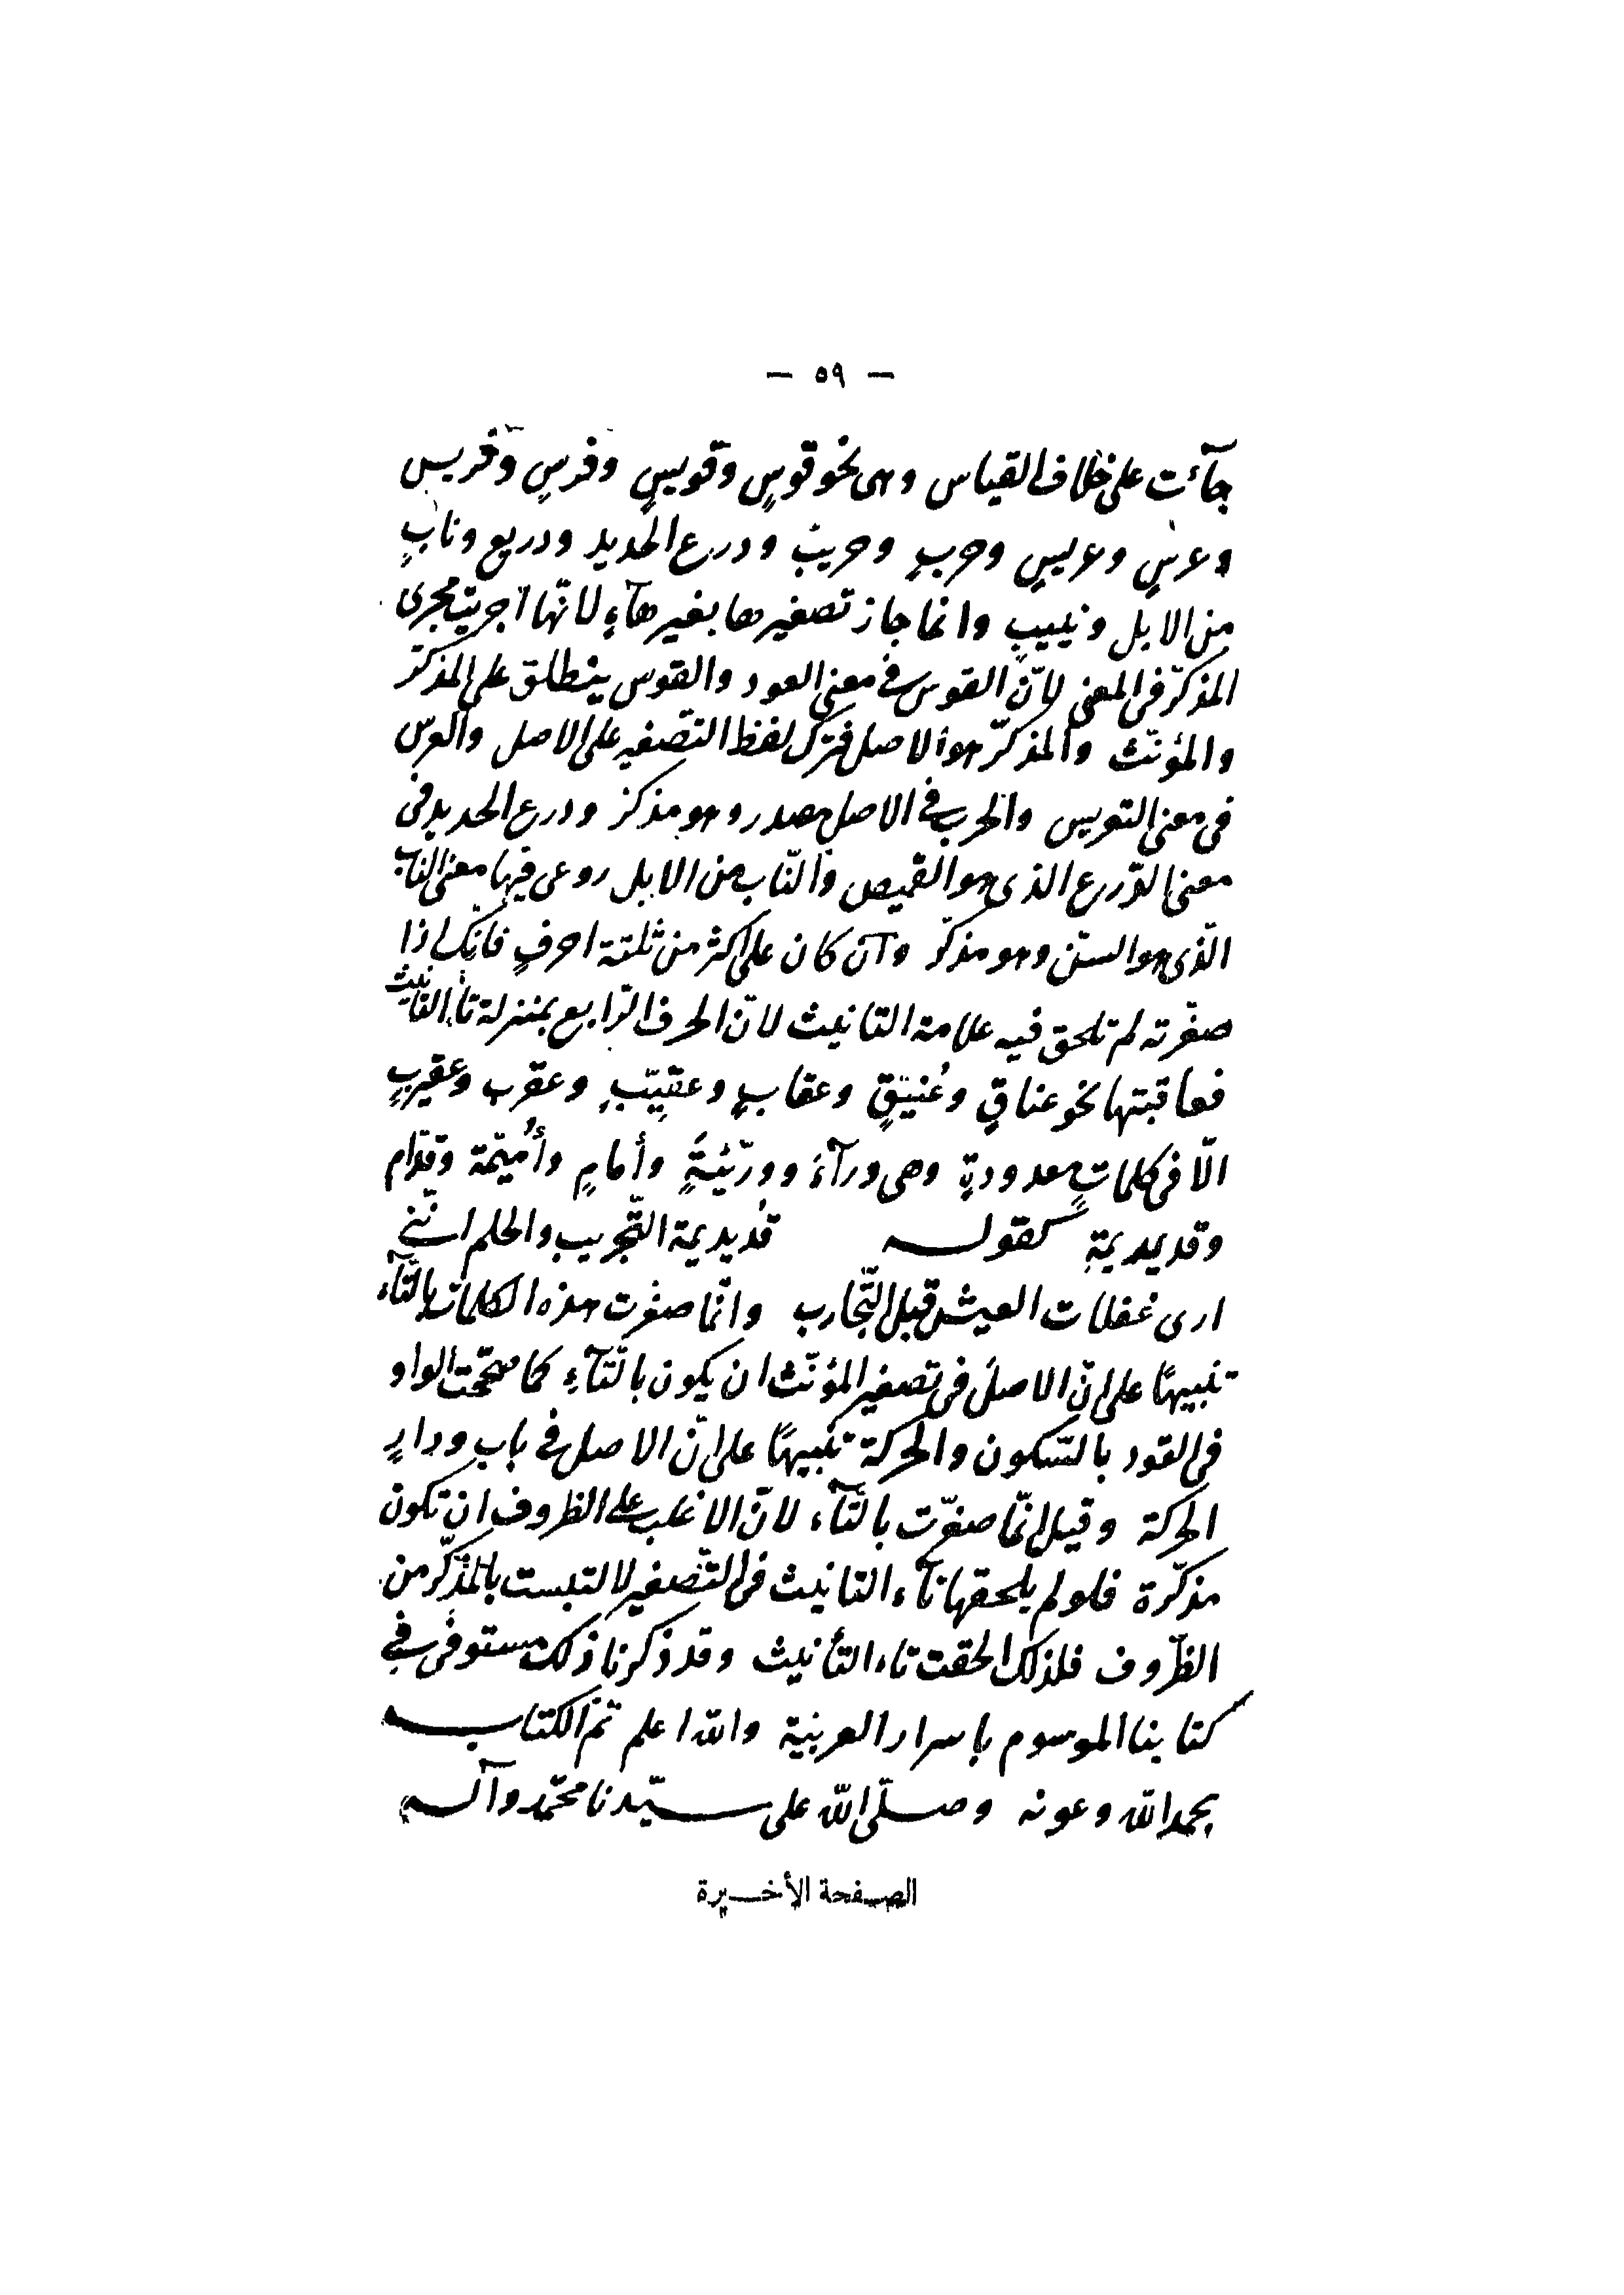 — ٥٩ —
جآءت على خلاف القياس وهى نحو قوسٍ وقويسٍ وفرسٍ وفريس
وعرسٍ وعريسٍ وحربٍ وحريبٍ ودرع الحديد ودريع ونابٍ
من الابل ونييبٍ وانما جاز تصغيرها بغير هآءٍ لانّها اجريت مجرى
المذكّر فى المعنى لانّ القوس فى معنى العود والقوس ينطلق على المذكّر
والمؤنّث والمذكّر هو الاصل فترك لفظ التصّغير على الاصل والعرس
فى معنى التعريس والحرب فى الاصل مصدر وهو مذكر ودرع الحديد فى
معنى الدّرع الذى هو القميص والنّاب من الابل روعى فيها معنى الناب
الّذى هو السنّ وهو مذكّر وان كان على اكثر من ثلثة احرفٍ فانّك اذا
صغّرته لم تلحق فيه علامة التانيث لانّ الحرف الرّابع بمنزلة تاء التانيث
فعاقبتها نحو عناقٍ وعُنيّقٍ وعقابٍ وعقيّبٍ وعقرب وعقيربٍ
الّا فى كلماتٍ معدودةٍ وهى ورآءَ ووريّئةٍ وأمامٍ وأُميّمة وقدّام
وقديديمةٍ كقوله قُديديمة التّجريب والحلم انّنى
ارى غفلات العيش قبل التّجارب وانّما صغرت هذه الكلمات بالتّآء
تنبيهًا على انّ الاصلَ فى تصغير المؤنّث ان يكون بالتّآءِ كما صحّحت الواو
فى القود بالسّكون والحركة تنبيهًا على انّ الاصل فى باب ودارٍ
الحركة وقيل انّما صغّرت بالتّآء لانّ الاغلب على الظروف ان تكون
مذكّرة فلو لم يلحقها تآء التانيث فى التّصغير لالتبست بالمذكّر من
الظرّوف فلذلك الحقت تاء التأنيث وقد ذكرنا ذلك مستوفى فى
كتابنا الموسوم باسرار العربيّة والله اعلم تمّ الكتاب
بحمد الله وعونه وصلّى اللّه على سيّدنا محمّد وآله
الصفحة الأخيرة